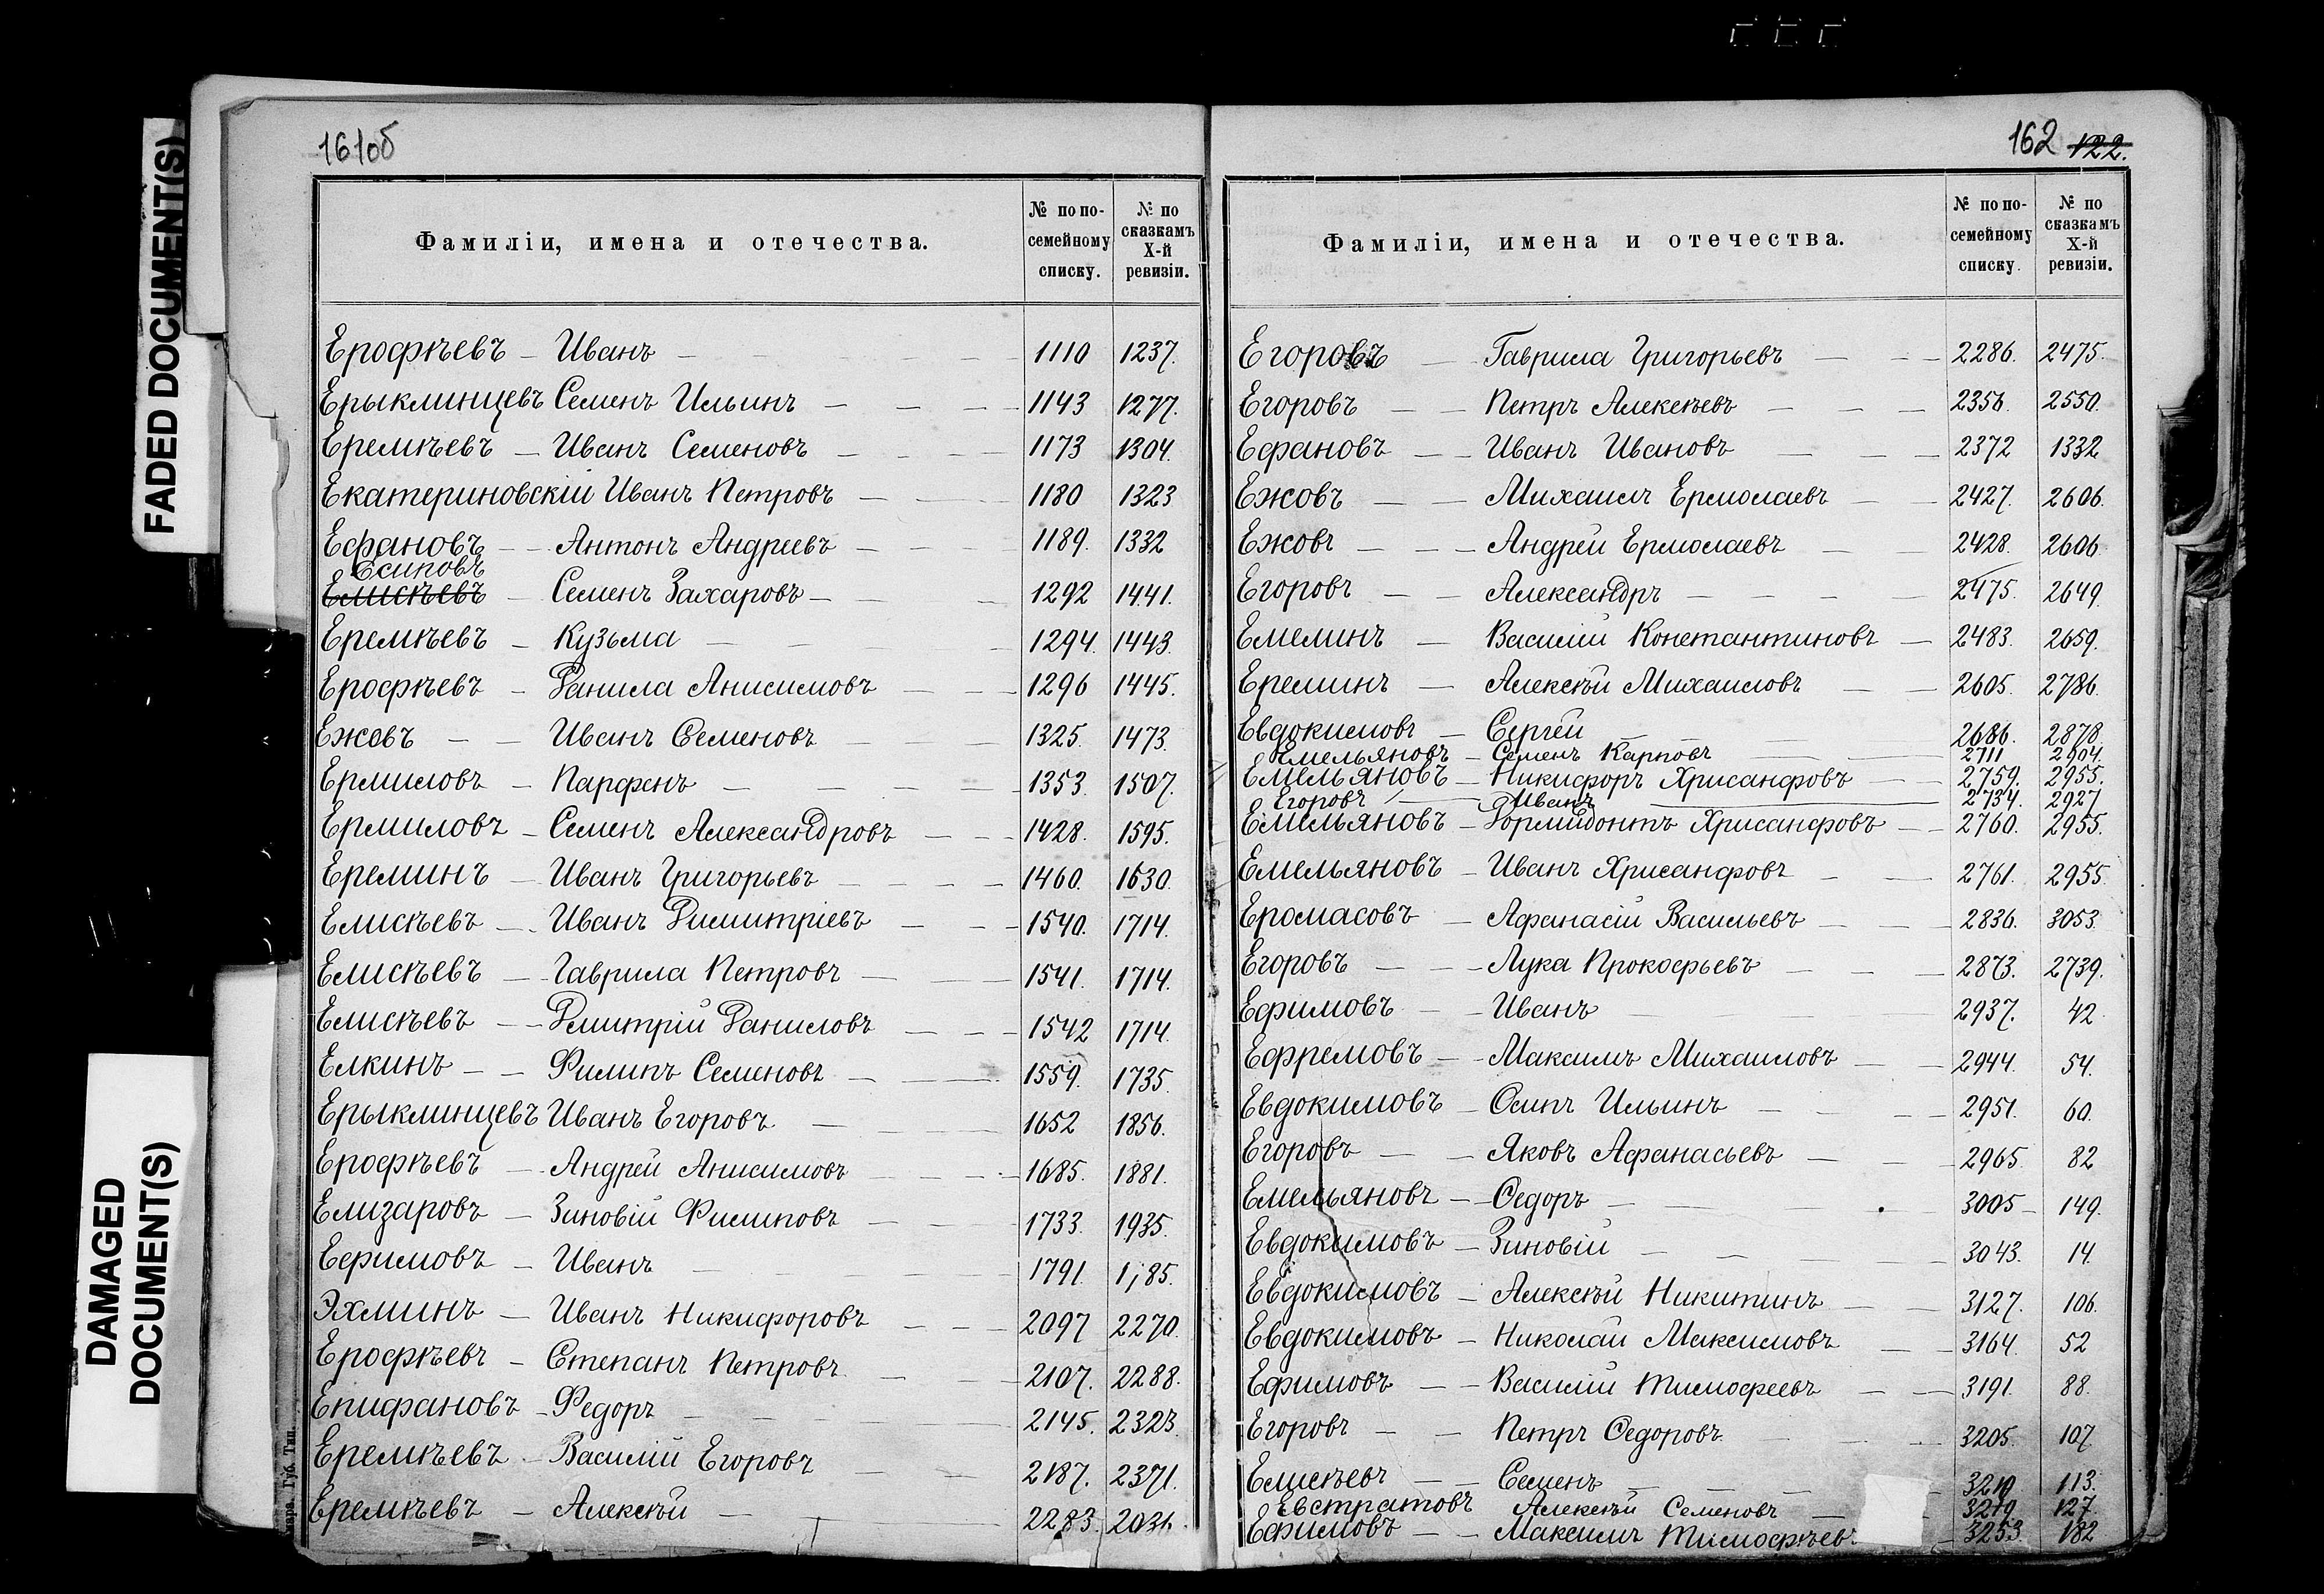 FADED DOCUMENT(S)
DAMAGED
DOCUMENT(S)
161об
Фамиліи, имена и отечества.
№ по по-
семейному
списку.
№ по
сказкамъ
X-й
ревизіи.
Ерофѣевъ — Иванъ — 1110 1237.
Ерыклинцевъ Семенъ Ильинъ — 1143 1277.
Еремѣевъ — Иванъ Семеновъ — 1173 1304.
Екатериновскій Иванъ Петровъ — 1180 1323
Ефановъ — Антонъ Андреевъ — 1189. 1332
Есиповъ
Елисѣевъ — Семенъ Захаровъ — 1292 1441.
Еремѣевъ — Кузьма — 1294. 1443.
Ерофѣевъ — Данила Анисимовъ — 1296 1445.
Ежовъ — Иванъ Семеновъ — 1325. 1473.
Ермиловъ — Парфенъ — 1353. 1507.
Ермиловъ — Семенъ Александровъ — 1428. 1595.
Ереминъ — Иванъ Григорьевъ — 1460. 1630.
Елисѣевъ — Иванъ Димитріевъ — 1540. 1714.
Елисѣевъ — Гаврила Петровъ — 1541. 1714.
Елисѣевъ — Дмитрій Даниловъ — 1542 1714.
Елкинъ — Филипъ Семеновъ — 1559. 1735.
Ерыклинцевъ Иванъ Егоровъ — 1652 1856.
Ерофѣевъ — Андрей Анисимовъ — 1685. 1881.
Елизаровъ — Зиновій Филиповъ — 1733. 1935.
Ефимовъ — Иванъ — 1791.
Эхминъ — Иванъ Никифоровъ — 2097 2270.
Ерофѣевъ — Степанъ Петровъ — 2107. 2288.
Епифановъ — Федоръ — 2145. 2323.
Еремѣевъ — Василій Егоровъ — 2187. 2371.
Еремѣевъ — Алексѣй — 2283.
162 122.
Фамиліи, имена и отечества.
№ по по-
семейному
списку.
№ по
сказкамъ
X-й
ревизіи.
Егоровъ — Гаврила Григорьевъ — 2286. 2475.
Егоровъ — Петръ Алексѣевъ — 2356. 2550.
Ефановъ — Иванъ Ивановъ — 2372 1332
Ежовъ — Михаилъ Ермолаевъ — 2427. 2606.
Ежовъ — Андрей Ермолаевъ — 2428. 2606
Егоровъ — Александръ — 2475. 2649.
Емелинъ — Василій Константиновъ — 2483. 2659.
Ереминъ — Алексѣй Михаиловъ — 2605. 2786.
Евдокимовъ — Сергѣй — 2686. 2878.
Емельяновъ — Семенъ Карповъ — 2711 2904.
Емельяновъ — Никифоръ Хрисанфовъ — 2759. 2955.
Егоровъ — Иванъ — 2734. 2927
Емельяновъ — Дормидонтъ Хрисанфовъ — 2760. 2955.
Емельяновъ — Иванъ Хрисанфовъ — 2761. 2955.
Еромасовъ — Афанасій Васильевъ — 2836. 3053.
Егоровъ — Лука Прокофьевъ — 2873. 2739.
Ефимовъ — Иванъ — 2937. 42
Ефремовъ — Максимъ Михаиловъ — 2944. 54.
Евдокимовъ — Осипъ Ильинъ — 2951. 60.
Егоровъ — Яковъ Афанасьевъ — 2965. 82
Емельяновъ — Ѳедоръ — 3005 — 149.
Евдокимовъ — Зиновій — 3043. 14.
Евдокимовъ — Алексѣй Никитинъ — 3127. 106.
Евдокимовъ — Николай Максимовъ — 3164. 52
Ефимовъ — Василій Тимофеевъ — 3191. 88.
Егоровъ — Петръ Ѳедоровъ — 3205. 107
Елисѣевъ — Семенъ — 3210 113.
Евстратовъ Алексѣй Семеновъ — 3219. 127.
Ефимовъ — Максимъ Тимофѣев. — 3253. 182